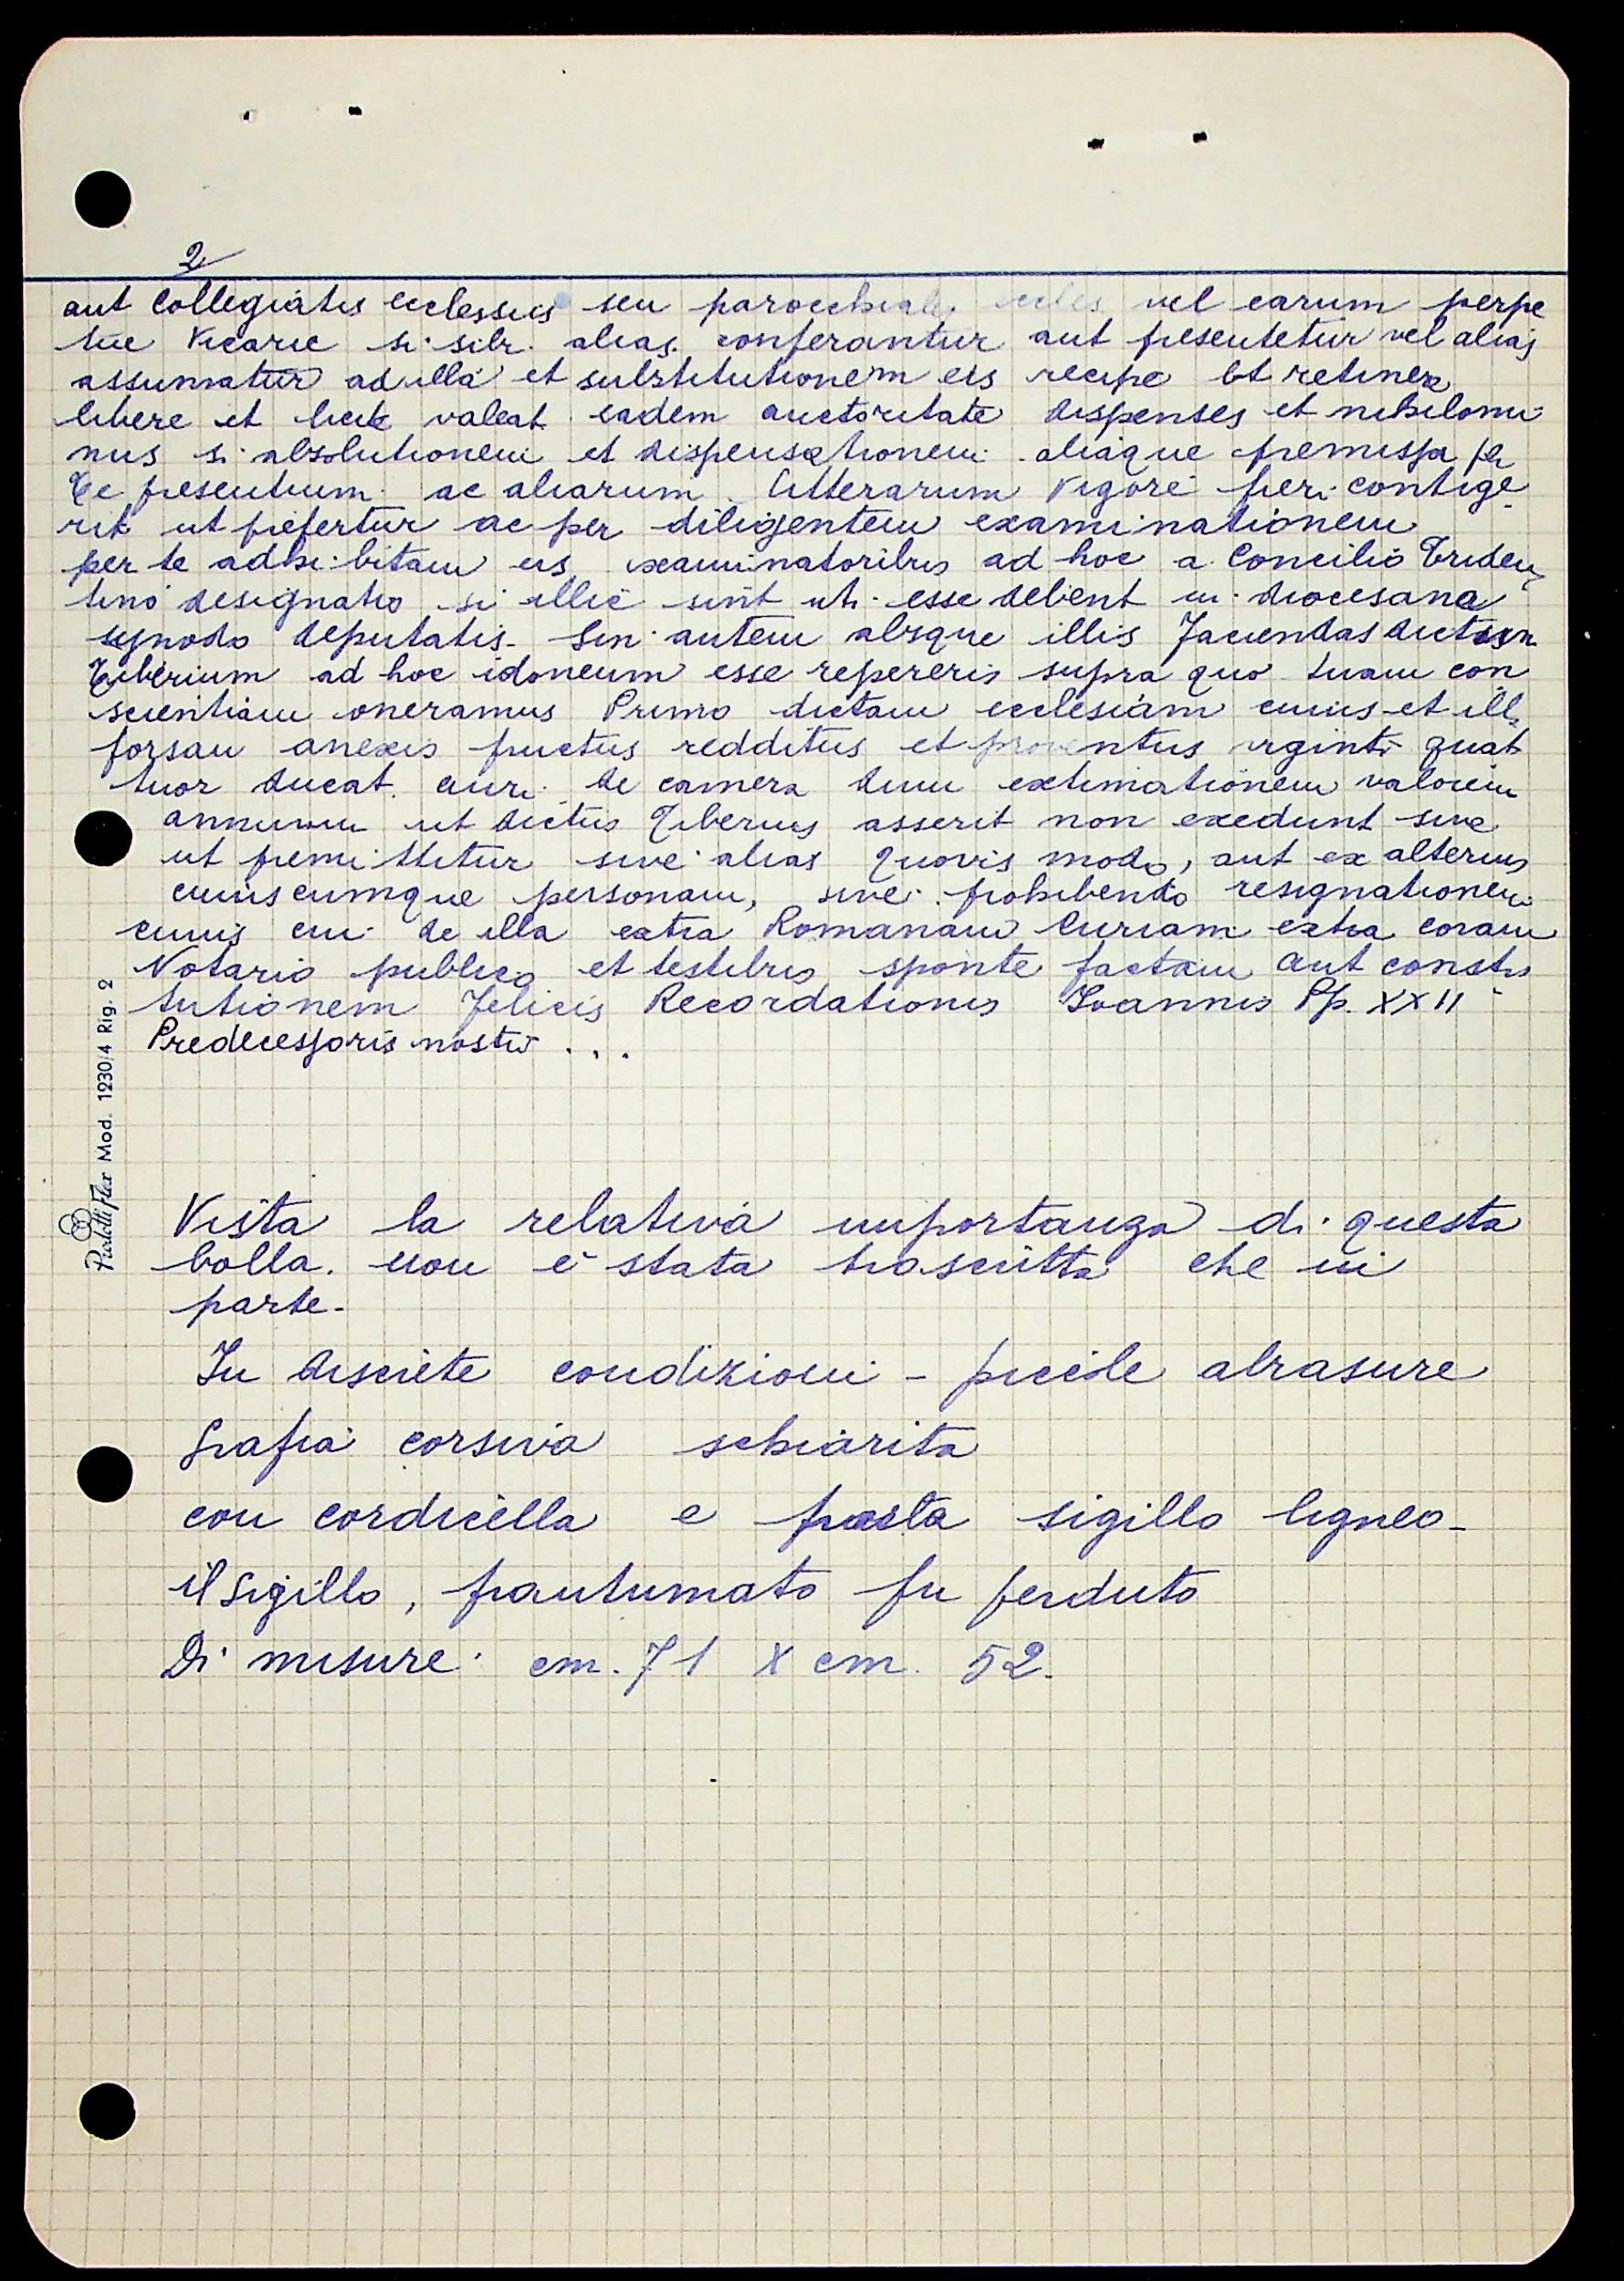 2
aut Collegiatis ecclesiis seu parocchiale eccles vel earum perpe
tue Vicarie si sibi alias conferantur aut presentetur vel alias
assumatur ad illa et substitutionem eis recipe et retinere
libere et licite valeat eadem auctoritate dispenses et nihilomi
nus si absolutionem et dispensationem aliaque premissa per
Te presentium ac aliarum litterarum vigore fieri contige
rit ut prefertur ac per diligentem examinationem
per te adhibitam eis examinatoribus ad hoc a Concilio Triden
tino designatis si illic sint uti esse debent in diocesana
synodo deputatis. Sin autem absque illis faciendas dictum
Tiberium ad hoc idoneum esse repereris supra quo tuam con
scientiam oneramus Primo dictam ecclesiam cuius et ill.
forsan anexis fructus redditus et proventus viginti quat
tuor ducat. auri de camera dum extimationem valorem
annuum ut dictus Tiberius asserit non exedunt sive
ut premittitur sive alias quovis modo, aut ex alterius
cuiuscumque personam, sive prohibendo resignationem
cuius cui de illa extra Romanam Curiam extra coram
Notario publico et testibus sponte factam aut consti
tutionem felicis Recordationis Ioannis Pp. XXII
Predecessoris nostri ...
Vista la relativa importanza di questa
bolla. non è stata trascritta che in
parte-
In discrete condizioni - piccole abrasure
Grafia corsiva schiarita
con cordicella e porta sigillo ligneo-
il sigillo, frantumato fu perduto
Di misure: cm. 71 x cm. 52.
Pralottiflex Mod. 1230/4 Rig. 2